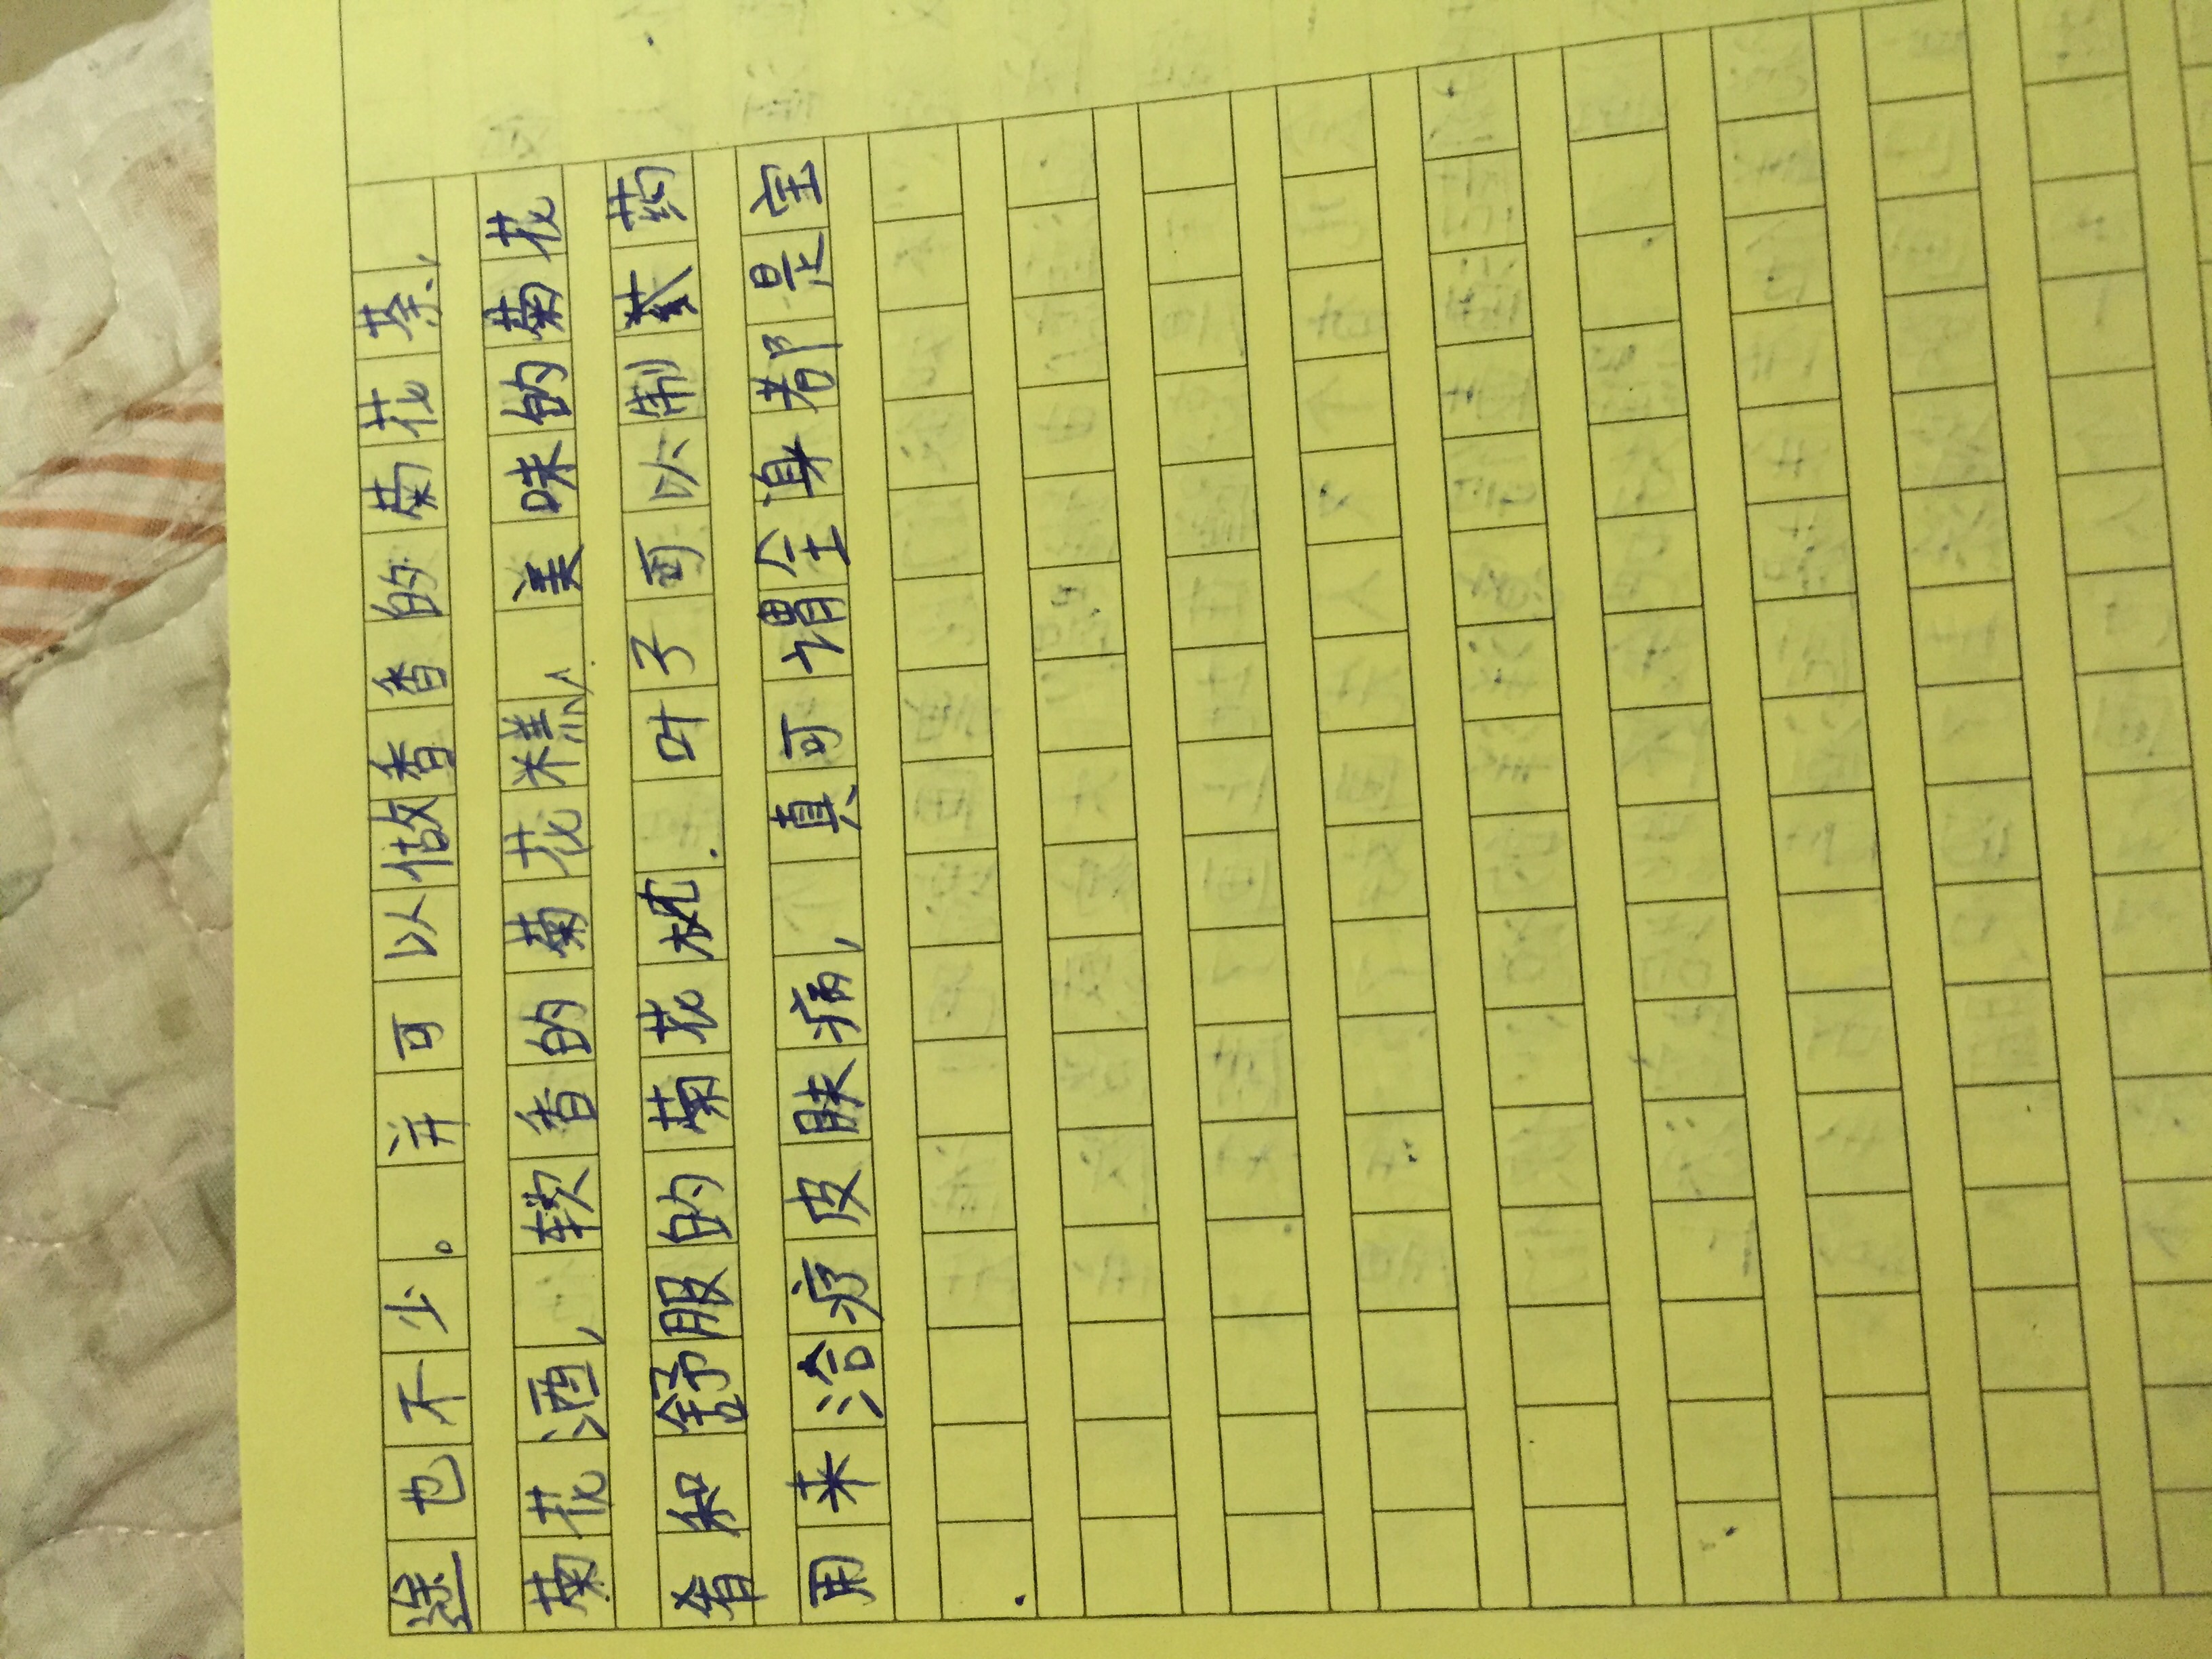 途也不少。并可以做香香的菊花茶、
菊花酒，软香的菊花糕、美味的菊花
肴和舒服的菊花枕.叶子可以制药
用来治疗皮肤病，真可谓全身都是宝
.